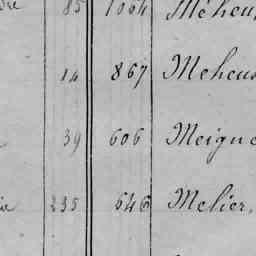 85 1064 Méheu
14 867 Meheus
39 606 Meigne
235 646 Melier,